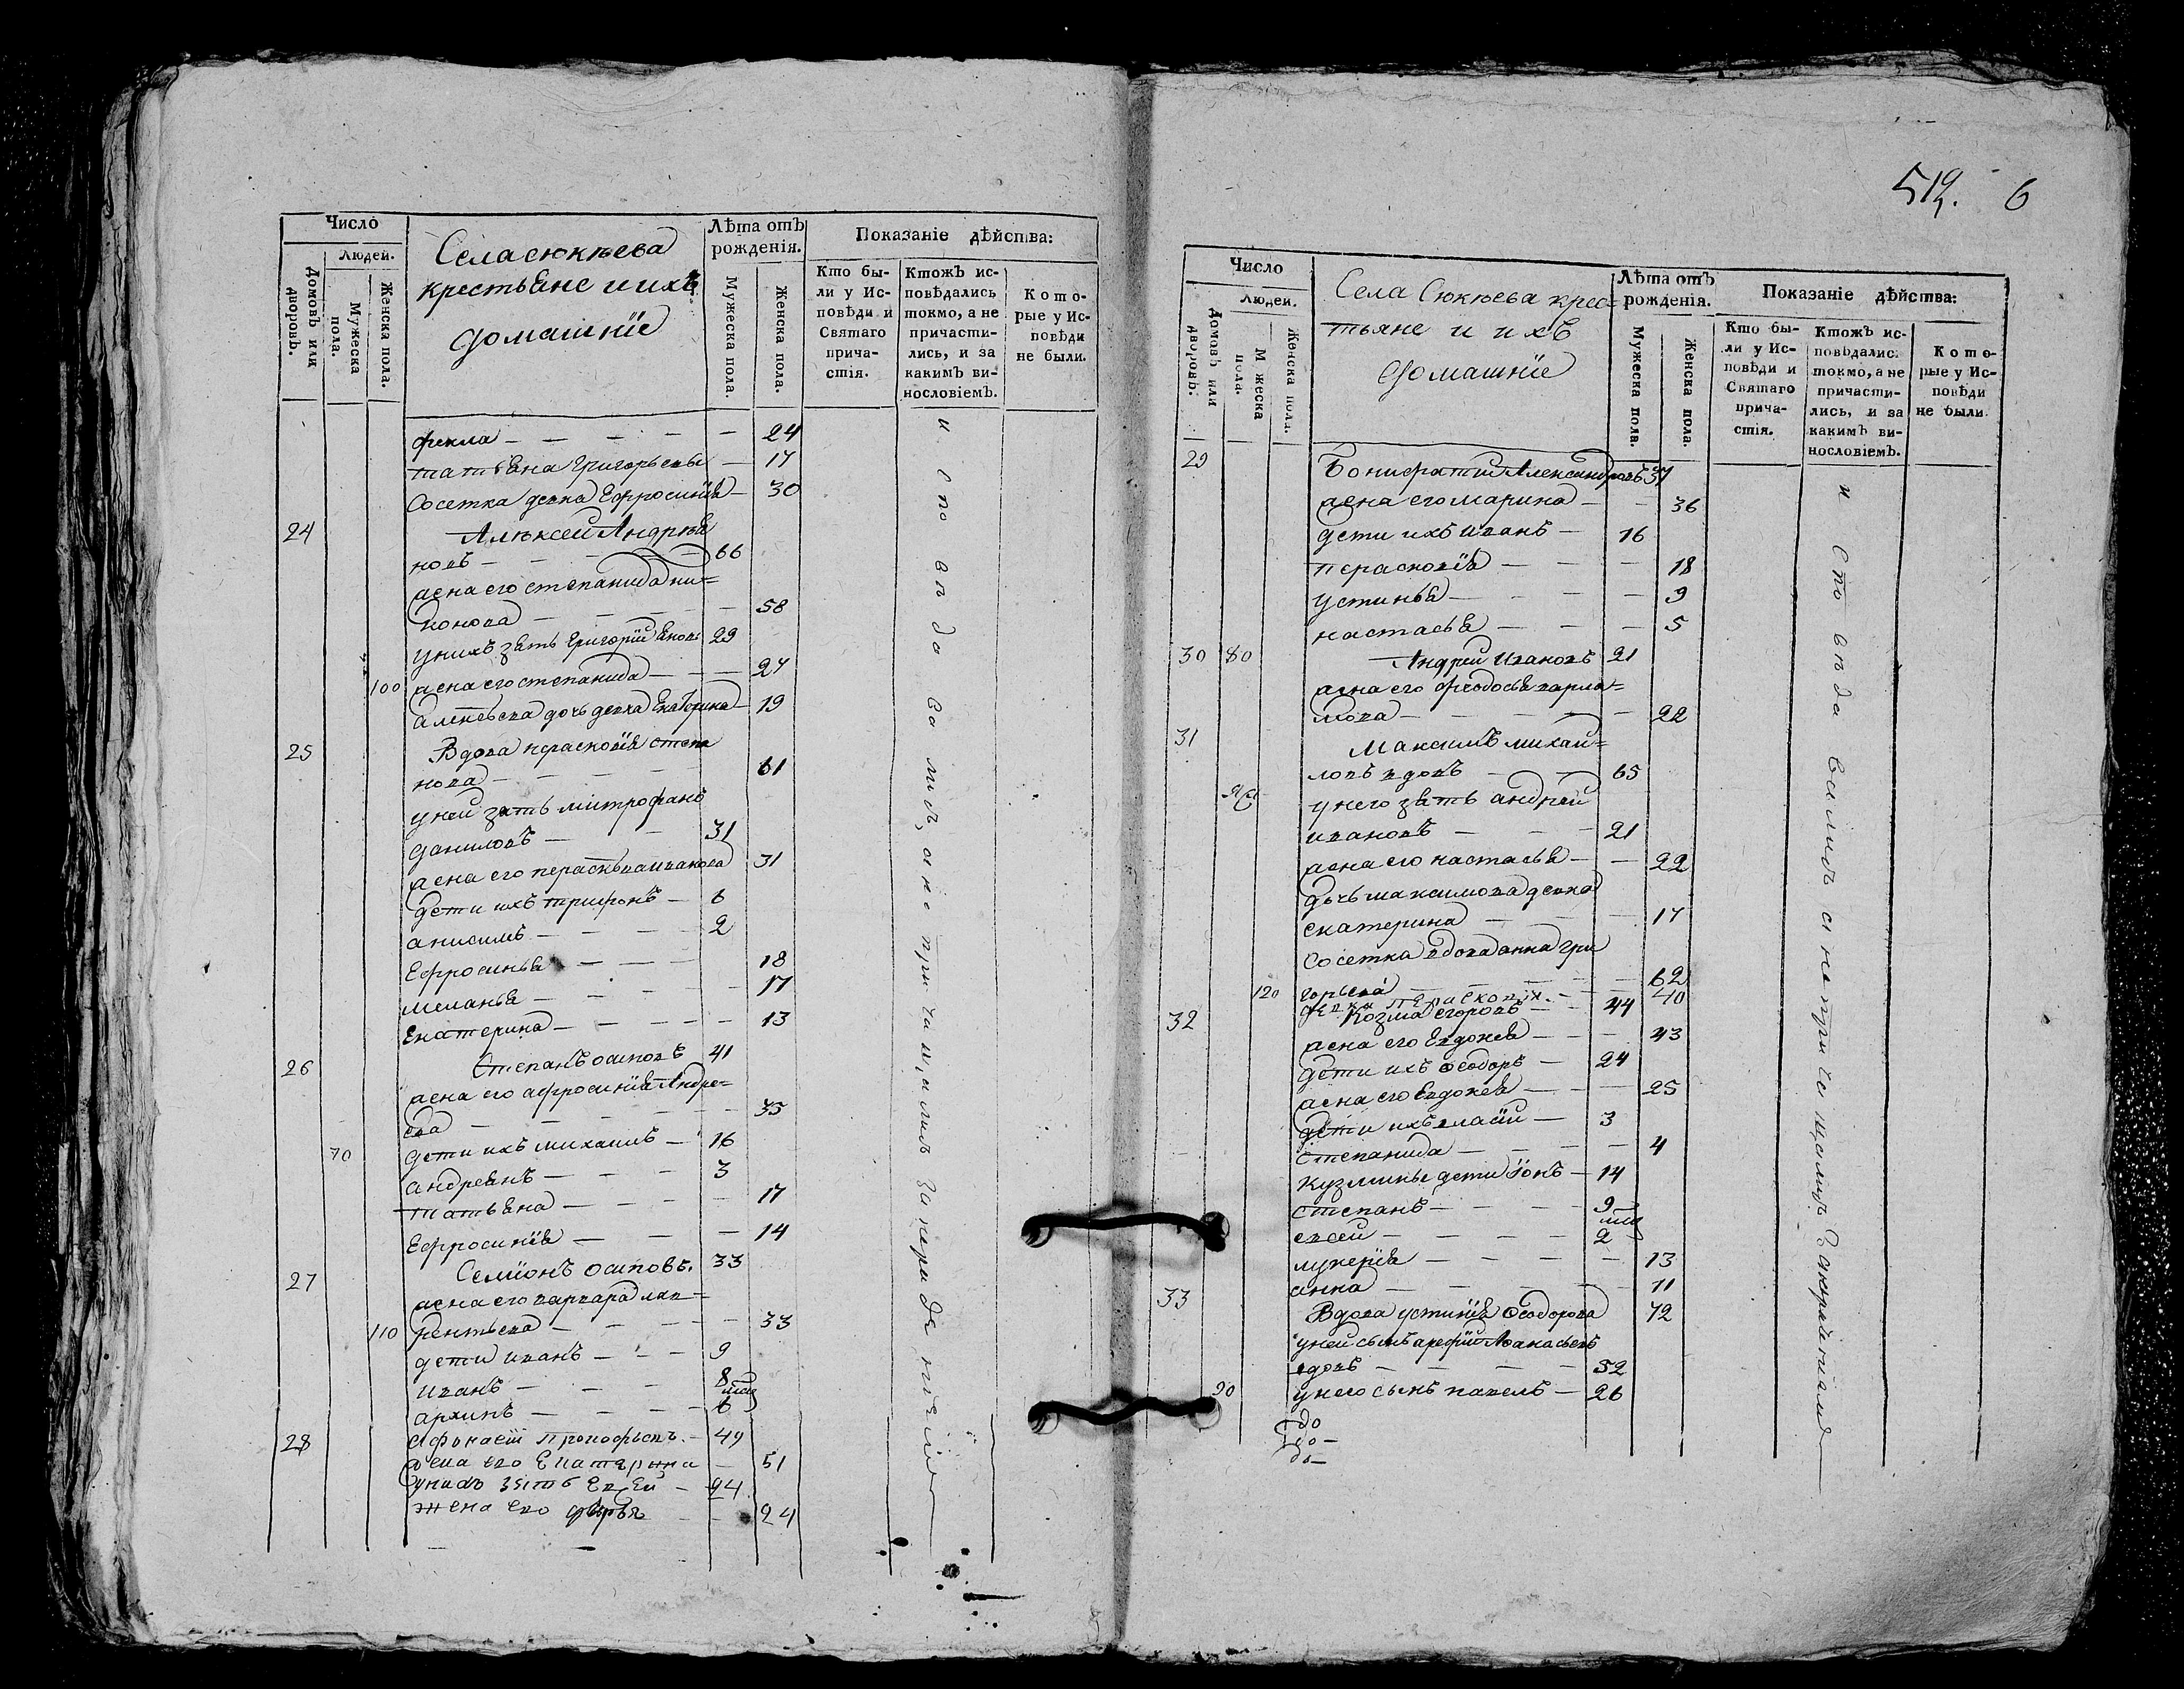 Число
Людей.
Домовъ или дворовъ.
Мужеска пола.
Женска пола.
Села сюкѣева
крестьяне и ихъ
домашнїе
Лѣта отъ
рожденія.
Мужеска пола.
Женска пола.
Показаніе дѣйства:
Кто бы-
ли у Ис-
повѣди и
Святаго
прича-
стія.
Ктожъ ис-
повѣдались
токмо, а не
причасти-
лись, и за
какимъ ви-
нословіемъ.
Кото-
рые у Ис-
повѣди
не были.
фекла — — — — — 24
татьяна григорьевы — 17
Сосетка девка Ефросинїя — 30
24 Алѣксей Андрѣя
новъ — — — — 66
жена его степанида ни=
конова — — — — 58
у нихъ зять григорїй 29
100 жена его степанида — — 27
алексѣева дочь девка Екатерина — 19
25 Вдова перасковїя степа
нова — — — — 61
у ней зять митрофанъ
даниловъ — — 31
жена его перасковья иванова 31
дети ихъ трифонъ — 6
анисимъ — — — 2
Ефросинья — — — 18
меланья — — — — 17
Екатерина — — — — 13
26 Степанъ осиповъ 41
жена его афросинїя Андре=
ева — — — — 35
70 дети ихъ михаилъ — 16
андреянъ — — — 3
татьяна — — — — 17
Ефросинїя — — — 14
27 Семїонъ осиповъ. 33
жена его варвара лав=
110 рентьева — — — — 33
дети иванъ — — — 9
иванъ — — — 8
архипъ — — — — 6
28 афонасїй прокофьевъ. — 49
жена его Екатерина — 51
у нихъ зять Евсей — 24
жена его дарья — — 24
исповѣдовались, а не причащались за нерадѣнїем
519. 6
Число
Людей.
Домовъ или дворовъ.
Мжеска пола.
Женска пола.
Села Сюкѣева крес=
тьяне и ихъ
домашнїе
Лѣта отъ
рожденія.
Мужеска пола.
Женска пола.
Показаніе дѣйства:
Кто бы-
ли у Ис-
повѣди и
Святаго
прича-
стія.
Ктожъ ис-
повѣдалис.
токмо, а не
причасти-
лись, и за
какимъ ви-
нословіемъ.
Кото-
рые у Ис-
повѣди
не были.
29 Бонифатий Александровъ 37
жена его марина — — 36
дети ихъ иванъ — 16
перасковїя — — — 18
устинья — — — — 9
настасья — — — 5
30 80 Андрей ивановъ 21
жена его федосья варла=
мова — — — — — 22
31 Максимъ михаи=
ловъ вдовъ — — 65
у него зять андрей
ивановъ — — — 21
жена его настасья — — 22
дочь максимова девка
екатерина — — — 17
Сосетка вдова анна гри
120 горьева — — — — 62
девка перасковїя. — — 40
32 Козма егоровъ — — 44
жена его Евдокея — — — 43
дети ихъ Ѳеодоръ — 24
жена его Евдокея — — 25
дети ихъ власїй — 3
степанида — — — — 4
кузмины дети їонъ — 14
степанъ — — — — 9
евсей — — — — 2
лукерїя — — — — 13
анна — — — — 11
33 Вдова устинїя Ѳеодорова 72
у ней сынъ арефий Аѳанасьевъ
вдовъ — — — — 52
90 у него сынъ павелъ — 26
исповѣдовались а не причащались за нерадѣнїем